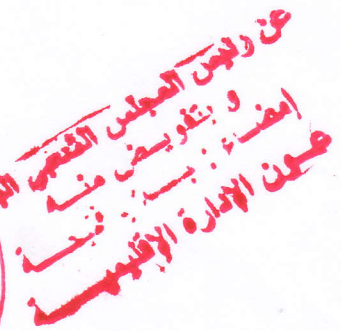 عن رئيس المجلس الشعبي
و بتفويض منه
إمضاء :
عون الإدارة الإقليمية